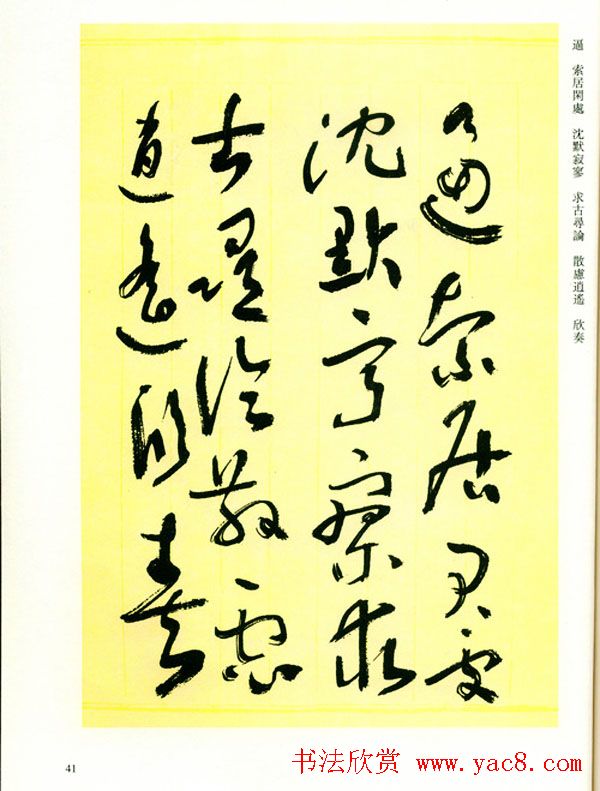 逼　索居閑處　沈默寂寥　求古尋論　散慮逍遙　欣奏
逼索居閑處
沈默寂寥求
古尋論散慮
逍遙欣奏
41
书法欣赏 www.yac8.com